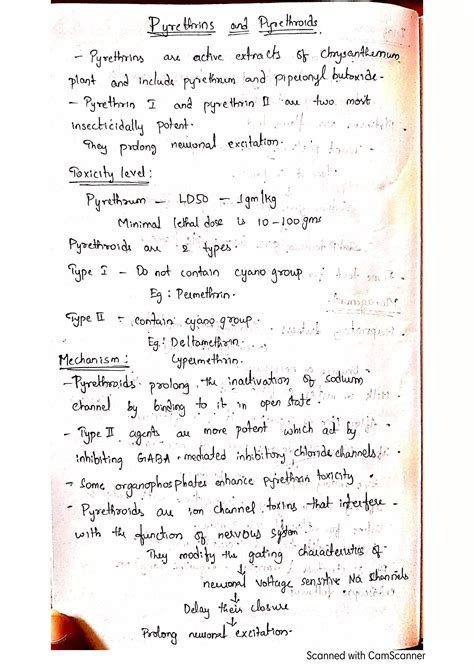 Pyrethrins and Pyrethroids.
- Pyrethrins are active extracts of Chrysanthemum
plant and include pyrethrum and piperonyl butoxide.
- Pyrethrin I and pyrethrin II are two most
insecticidally potent.
They prolong neuronal excitation.
Toxicity level:
Pyrethrum - LD50 - 1gm/kg
Minimal lethal dose is 10-100gms
Pyrethroids are 2 types.
Type I - Do not contain cyano group.
Eg: Permethrin.
Type II - contain cyano group.
Eg: Deltamethrin.
Cypermethrin.
Mechanism:
- Pyrethroids prolong the inactivation of sodium
channel by binding to it in open state.
- Type II agents are more potent which act by
inhibiting GABA-mediated inhibitory chloride channels.
- Some organophosphates enhance pyrethrin toxicity
- Pyrethroids are ion channel toxins that interfere
with the function of nervous system
They modify the gating characteristics of
↓
neuronal voltage sensitive Na channels
↓
Delay their closure
↓
Prolong neuronal excitation.
Scanned with CamScanner